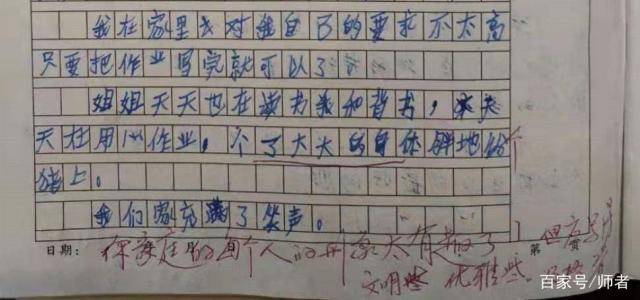 我在家里去对谁自己的要求不太高
只要把作业写完就可以了
姐姐天天也在读书我和背书，天
天在用心作业。个了大大的身体胖地给个
猪上。
我们家充满了笑声。
日期：你家庭的每个人的形象太有趣了
第 页
文明些 优雅些
百家号/师者